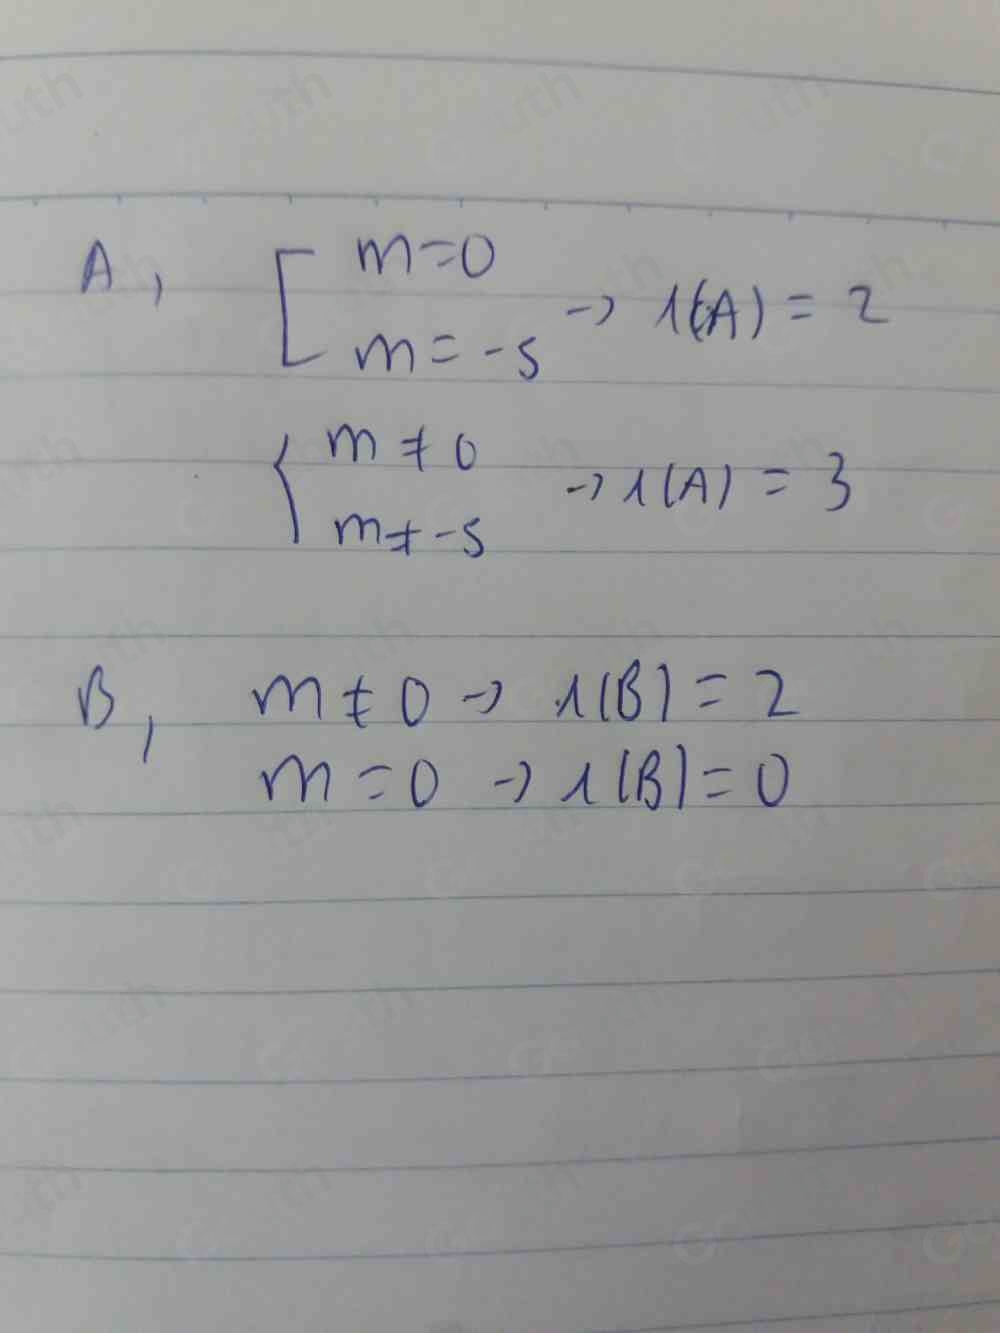 A, [ m=0
m = -5 → r(A) = 2
{ m ≠ 0
m ≠ -5 → r(A) = 3
B, m ≠ 0 → r(B) = 2
m = 0 → r(B) = 0